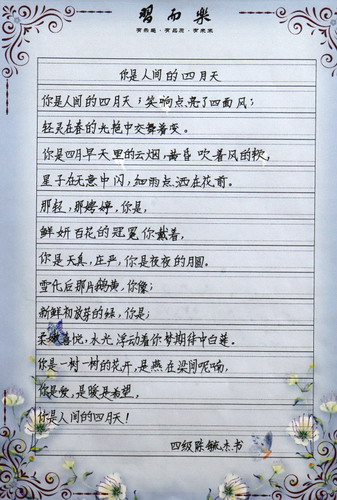 習而樂
你是人间的四月天
你是人间的四月天；笑响点亮了四面风；
轻灵在春的光艳中交舞着变。
你是四月早天里的云烟，黄昏吹着风的软，
星子在无意中闪，细雨点洒在花前。
那轻，那娉婷，你是，
鲜妍百花的冠冕你戴着，
你是天真，庄严，你是夜夜的月圆。
雪化后那片鹅黄，你像；
新鲜初放芽的绿，你是；
柔嫩喜悦，水光浮动着你梦期待中白莲。
你是一树一树的花开，是燕在梁间呢喃，
你是爱，是暖是希望，
你是人间的四月天！
四级陈毓杰书